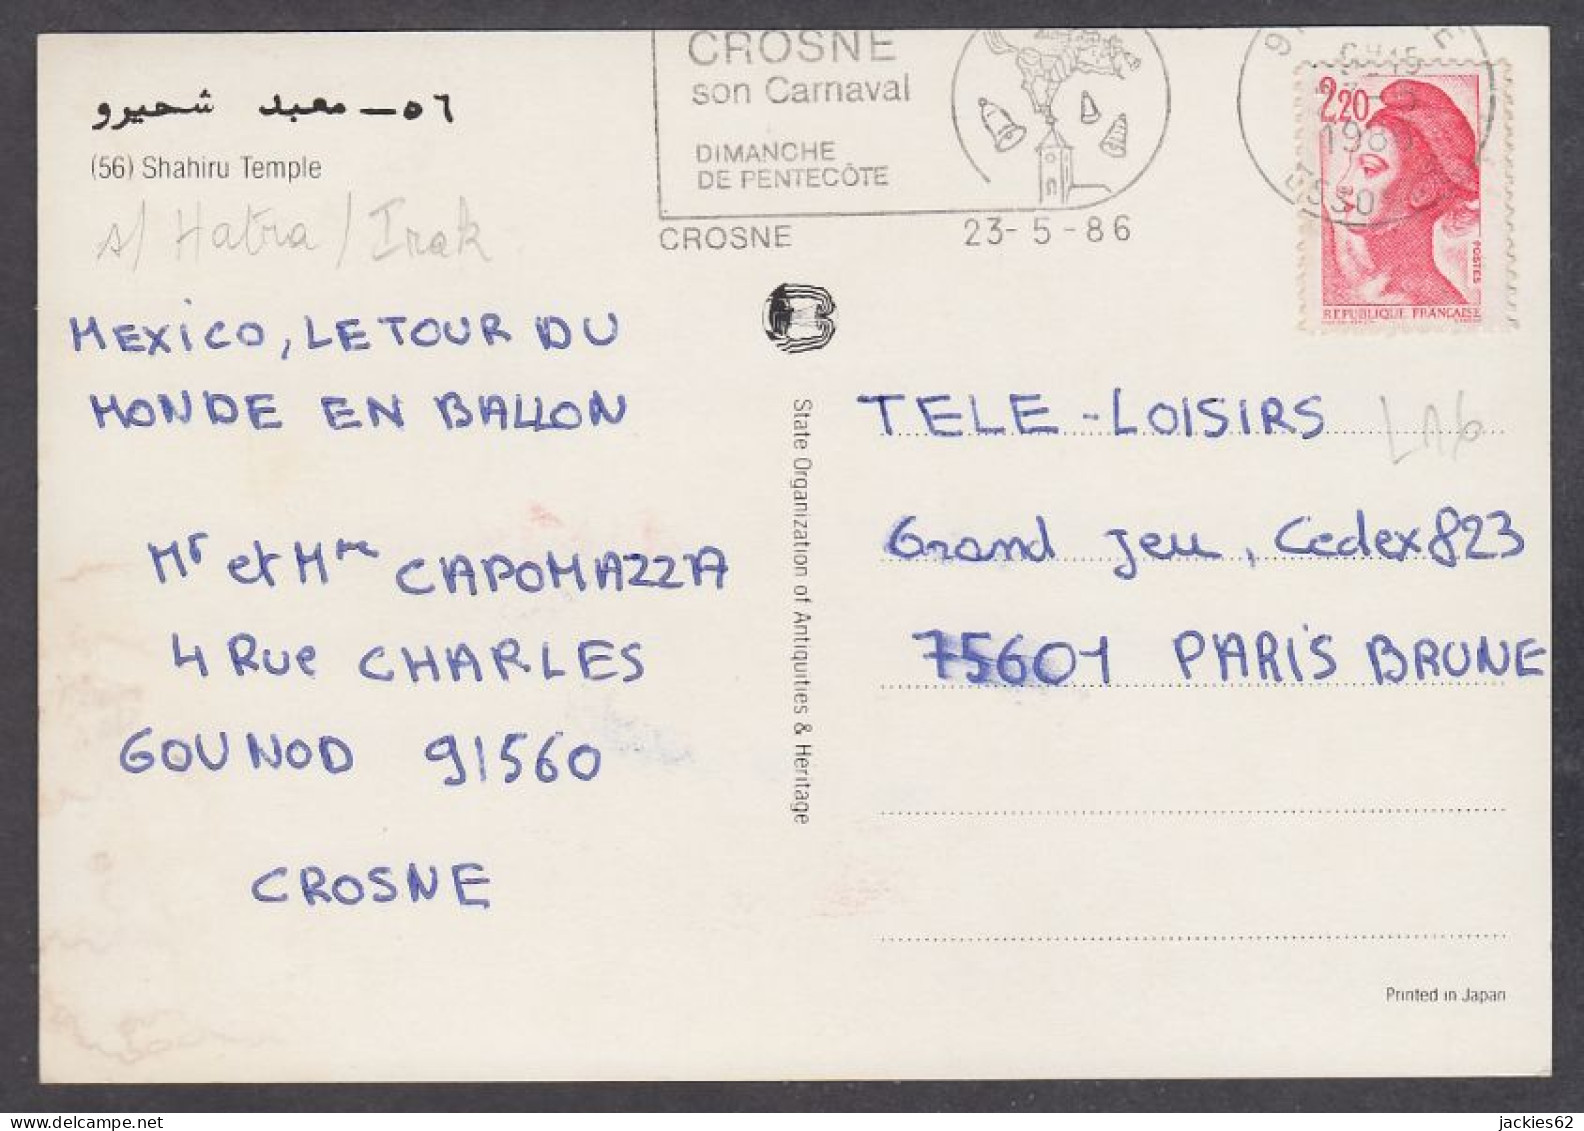 CROSNE
son Carnaval
DIMANCHE
DE PENTECÔTE
CROSNE
23-5-86
1986
2,20
POSTES
REPUBLIQUE FRANÇAISE
٥٦ ـ معبد شحيرو
(56) Shahiru Temple
s/ Hatra / Irak
MEXICO, LE TOUR DU
MONDE EN BALLON
Mr et Mme CAPOMAZZA
4 Rue CHARLES
GOUNOD 91560
CROSNE
State Organization of Antiquities & Heritage
TELE-LOISIRS
L16
Grand Jeu, Cedex 823
75601 PARIS BRUNE
Printed in Japan
jackies62